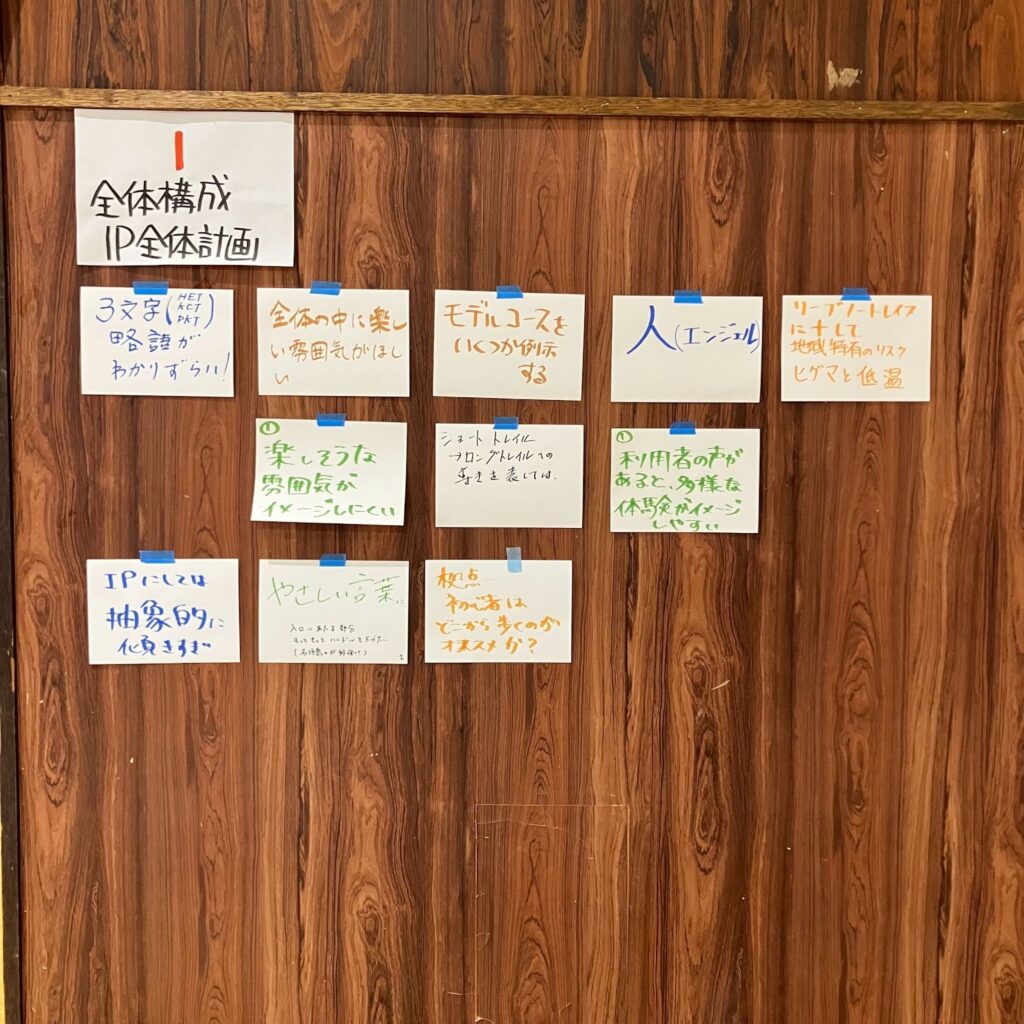 1
全体構成
IP全体計画
3文字(HET KCT PKT)
略語が
わかりずらい!
全体の中に楽し
い雰囲気がほし
い
モデルコースを
いくつか例示
する
人(エンジェル)
リーブノートレイス
に＋して
地域特有のリスク
ヒグマと低温
①
楽しそうな
雰囲気が
イメージしにくい
ショートトレイル
ロングトレイルへの
導きを表しては.
①
利用者の声が
あると、多様な
体験がイメージ
しやすい
IPにしては
抽象的に
傾きすぎ
やさしい言葉に
入口にあたる部分
もっともっとハードルを下げた
1
拠点…
初心者は
どこから歩くのが
オススメか?